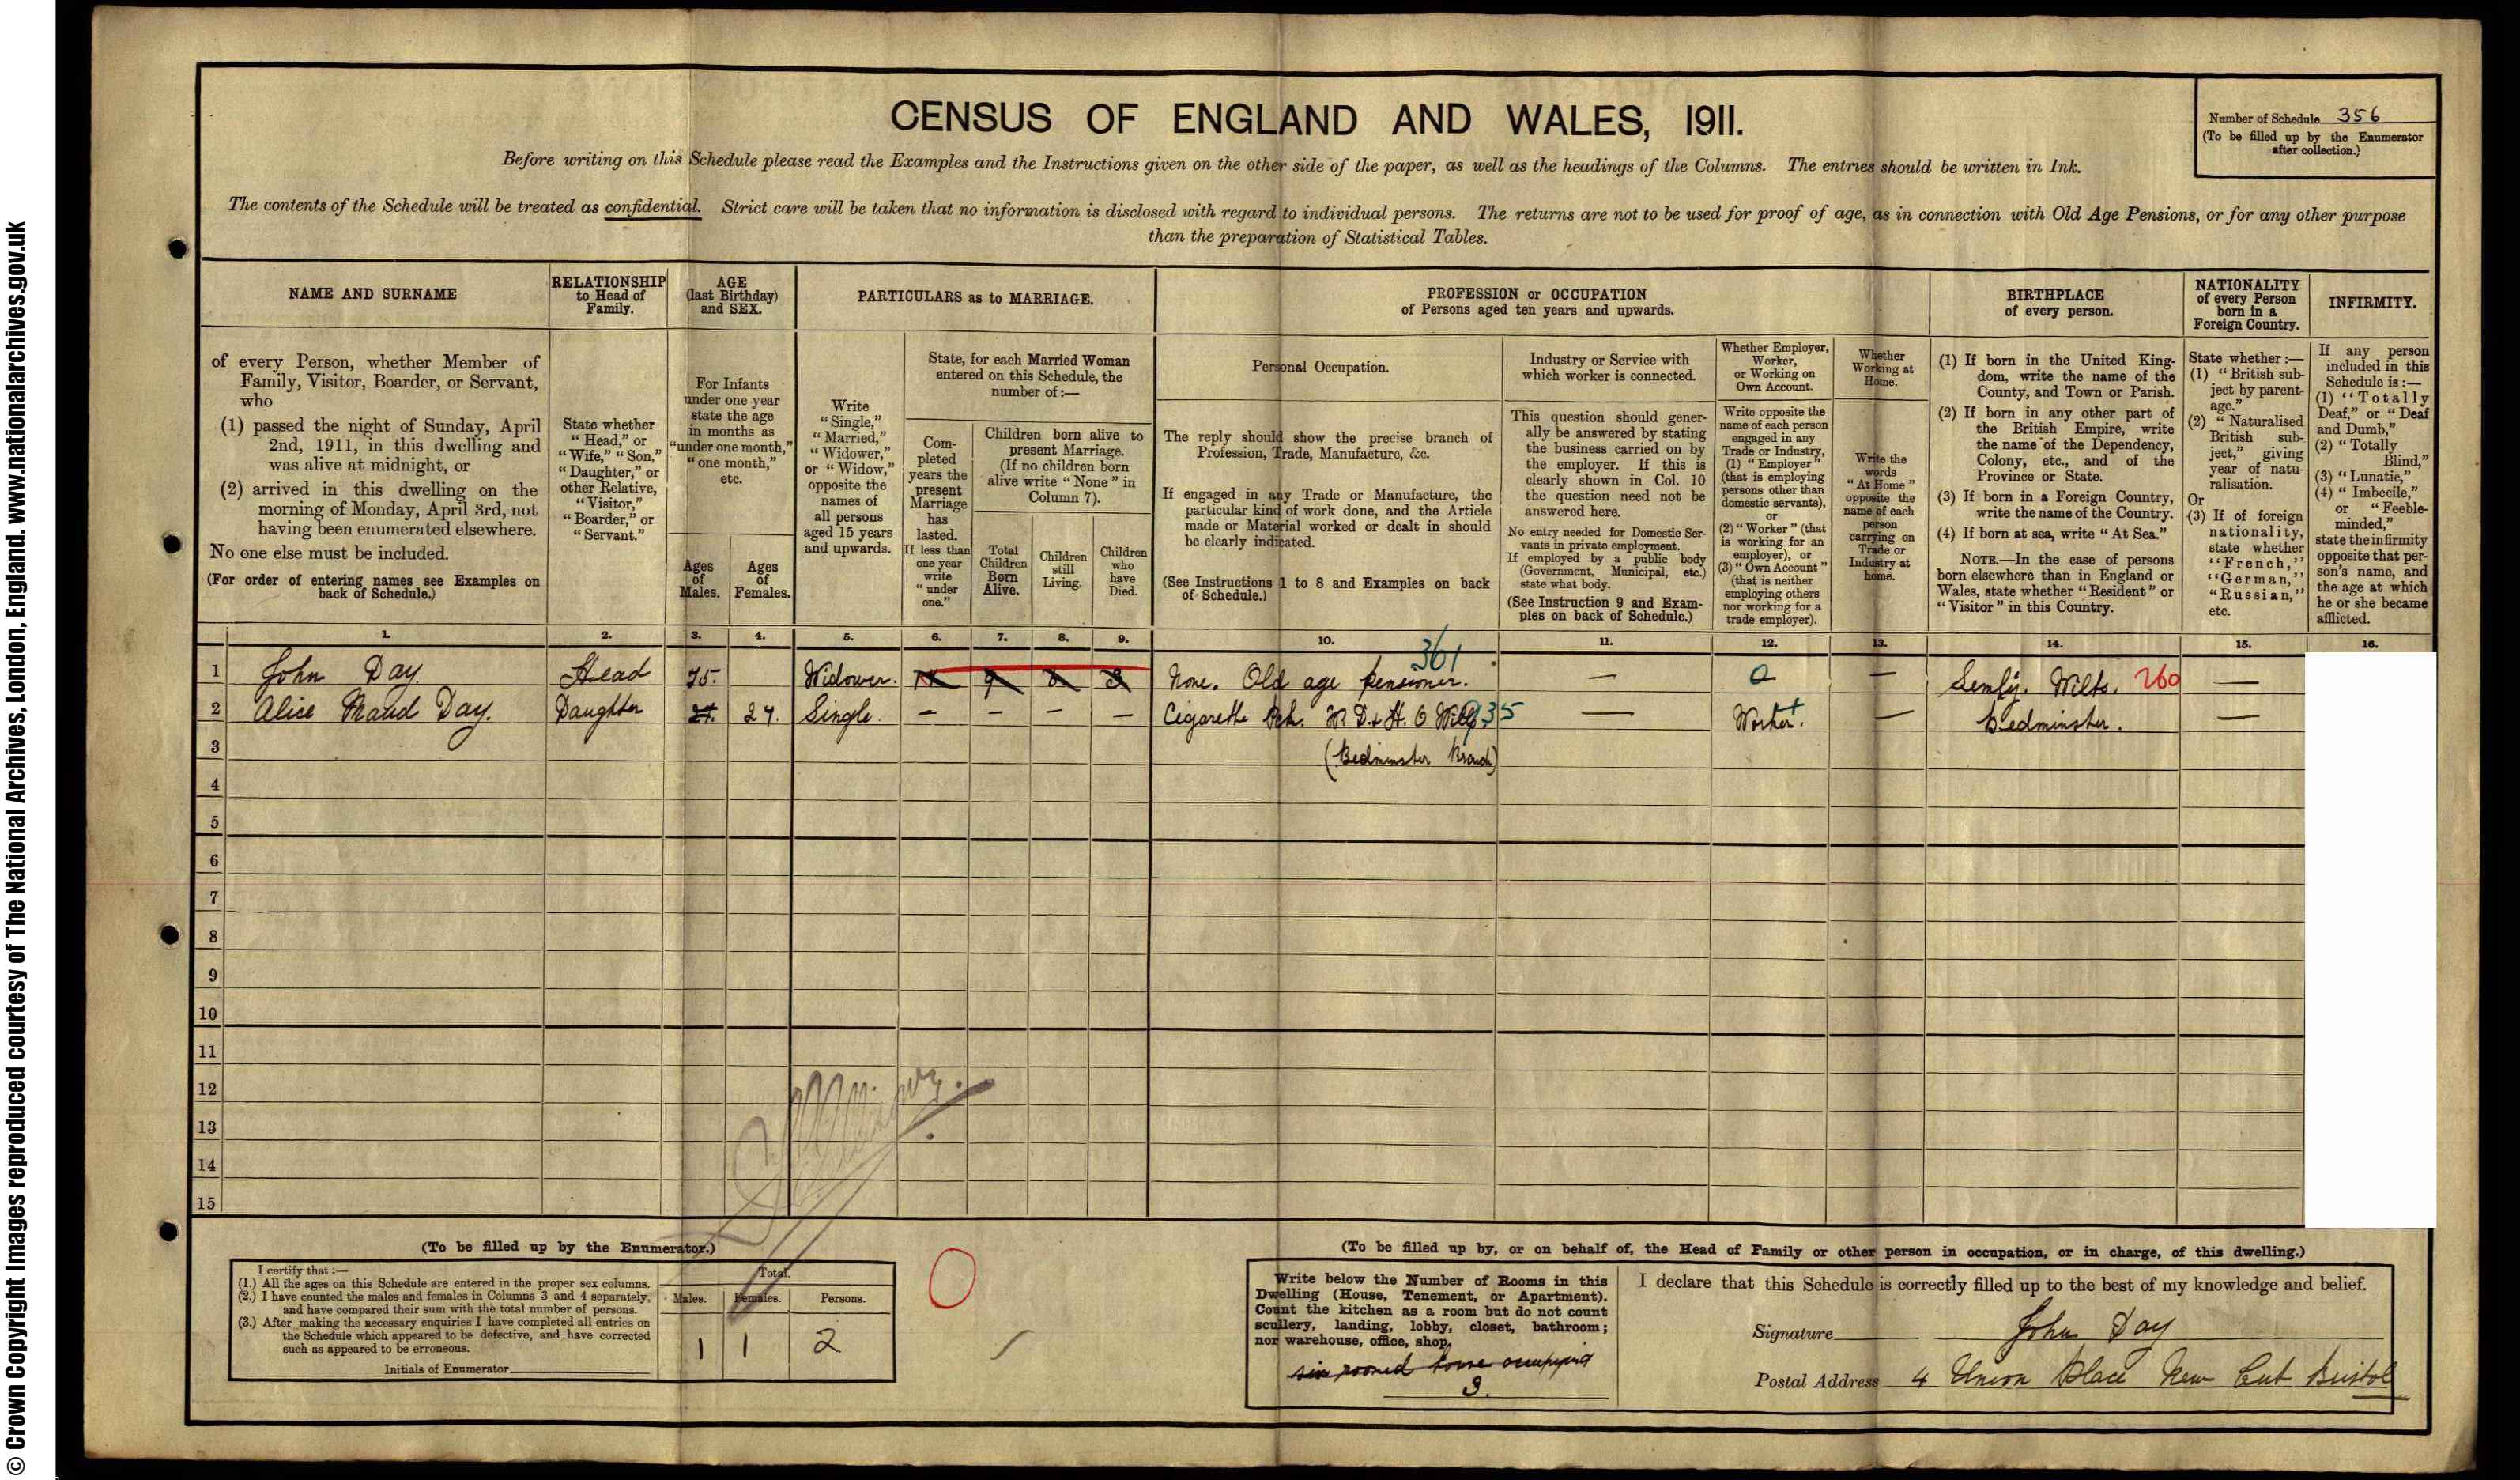 © Crown Copyright Images reproduced courtesy of The National Archives, London, England. www.nationalarchives.gov.uk
CENSUS OF ENGLAND AND WALES, 1911.
Number of Schedule 356
(To be filled up by the Enumerator
after collection.)
Before writing on this Schedule please read the Examples and the Instructions given on the other side of the paper, as well as the headings of the Columns. The entries should be written in Ink.
The contents of the Schedule will be treated as confidential. Strict care will be taken that no information is disclosed with regard to individual persons. The returns are not to be used for proof of age, as in connection with Old Age Pensions, or for any other purpose
than the preparation of Statistical Tables.
NAME AND SURNAME
of every Person, whether Member of
Family, Visitor, Boarder, or Servant,
who
(1) passed the night of Sunday, April
2nd, 1911, in this dwelling and
was alive at midnight, or
(2) arrived in this dwelling on the
morning of Monday, April 3rd, not
having been enumerated elsewhere.
No one else must be included.
(For order of entering names see Examples on
back of Schedule.)
RELATIONSHIP
to Head of
Family.
State whether
"Head," or
"Wife," "Son,"
"Daughter," or
other Relative,
"Visitor,"
"Boarder," or
"Servant."
AGE
(last Birthday)
and SEX.
For Infants
under one year
state the age
in months as
"under one month,"
"one month,"
etc.
Ages
of
Males.
Ages
of
Females.
PARTICULARS as to MARRIAGE.
Write
"Single,"
"Married,"
"Widower,"
or "Widow,"
opposite the
names of
all persons
aged 15 years
and upwards.
State, for each Married Woman
entered on this Schedule, the
number of:—
Com-
pleted
years the
present
Marriage
has
lasted.
If less than
one year
write
"under
one."
Children born alive to
present Marriage.
(If no children born
alive write "None" in
Column 7).
Total
Children
Born
Alive.
Children
still
Living.
Children
who
have
Died.
PROFESSION or OCCUPATION
of Persons aged ten years and upwards.
Personal Occupation.
The reply should show the precise branch of
Profession, Trade, Manufacture, &c.
If engaged in any Trade or Manufacture, the
particular kind of work done, and the Article
made or Material worked or dealt in should
be clearly indicated.
(See Instructions 1 to 8 and Examples on back
of Schedule.)
Industry or Service with
which worker is connected.
This question should gener-
ally be answered by stating
the business carried on by
the employer. If this is
clearly shown in Col. 10
the question need not be
answered here.
No entry needed for Domestic Ser-
vants in private employment.
If employed by a public body
(Government, Municipal, etc.)
state what body.
(See Instruction 9 and Exam-
ples on back of Schedule.)
Whether Employer,
Worker,
or Working on
Own Account.
Write opposite the
name of each person
engaged in any
Trade or Industry,
(1) "Employer"
(that is employing
persons other than
domestic servants),
or
(2) "Worker" (that
is working for an
employer), or
(3) "Own Account"
(that is neither
employing others
nor working for a
trade employer).
Whether
Working at
Home.
Write the
words
"At Home"
opposite the
name of each
person
carrying on
Trade or
Industry at
home.
BIRTHPLACE
of every person.
(1) If born in the United King-
dom, write the name of the
County, and Town or Parish.
(2) If born in any other part of
the British Empire, write
the name of the Dependency,
Colony, etc., and of the
Province or State.
(3) If born in a Foreign Country,
write the name of the Country.
(4) If born at sea, write "At Sea."
NOTE.—In the case of persons
born elsewhere than in England or
Wales, state whether "Resident" or
"Visitor" in this Country.
NATIONALITY
of every Person
born in a
Foreign Country.
State whether:—
(1) "British sub-
ject by parent-
age."
(2) "Naturalised
British sub-
ject," giving
year of natu-
ralisation.
Or
(3) If of foreign
nationality,
state whether
"French,"
"German,"
"Russian,"
etc.
INFIRMITY.
If any person
included in this
Schedule is:—
(1) "Totally
Deaf," or "Deaf
and Dumb,"
(2) "Totally
Blind,"
(3) "Lunatic,"
(4) "Imbecile,"
or "Feeble-
minded,"
state the infirmity
opposite that per-
son's name, and
the age at which
he or she became
afflicted.
1. 2. 3. 4. 5. 6. 7. 8. 9. 10. 11. 12. 13. 14. 15. 16.
361
1 John Day. Head 75. Widower. 9 3 None. Old age pensioner. — 0 — Wilts. 260 —
2 Alice Maud Day. Daughter 27. Single. — — — — Cigarette W D & H. O Wills 935 — Worker. — Bedminster. —
3 (Bedminster Branch)
4
5
6
7
8
9
10
11
12
13
14
15
(To be filled up by the Enumerator.)
I certify that:—
(1.) All the ages on this Schedule are entered in the proper sex columns.
(2.) I have counted the males and females in Columns 3 and 4 separately,
and have compared their sum with the total number of persons.
(3.) After making the necessary enquiries I have completed all entries on
the Schedule which appeared to be defective, and have corrected
such as appeared to be erroneous.
Initials of Enumerator
Total.
Males. Females. Persons.
1 1 2
(To be filled up by, or on behalf of, the Head of Family or other person in occupation, or in charge, of this dwelling.)
Write below the Number of Rooms in this
Dwelling (House, Tenement, or Apartment).
Count the kitchen as a room but do not count
scullery, landing, lobby, closet, bathroom;
nor warehouse, office, shop.
six roomed house occupying
3.
I declare that this Schedule is correctly filled up to the best of my knowledge and belief.
Signature John Day
Postal Address 4 Union Place New Cut Bristol